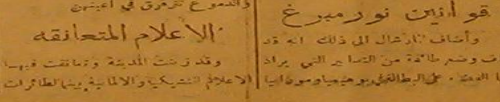 قوانين نورمبرغ
وأضاف المارشال الى ذلك انه قد
وضع طائفة من التدابير التي يراد
على البطالفي بوهيميا ومورافيا
والدموع تترقرق في اعينهن
الاعلام المتعانقه
وقد زينت المدينة وتعانقت فيها
الاعلام التشيكية والالمانية بينما الطائرات